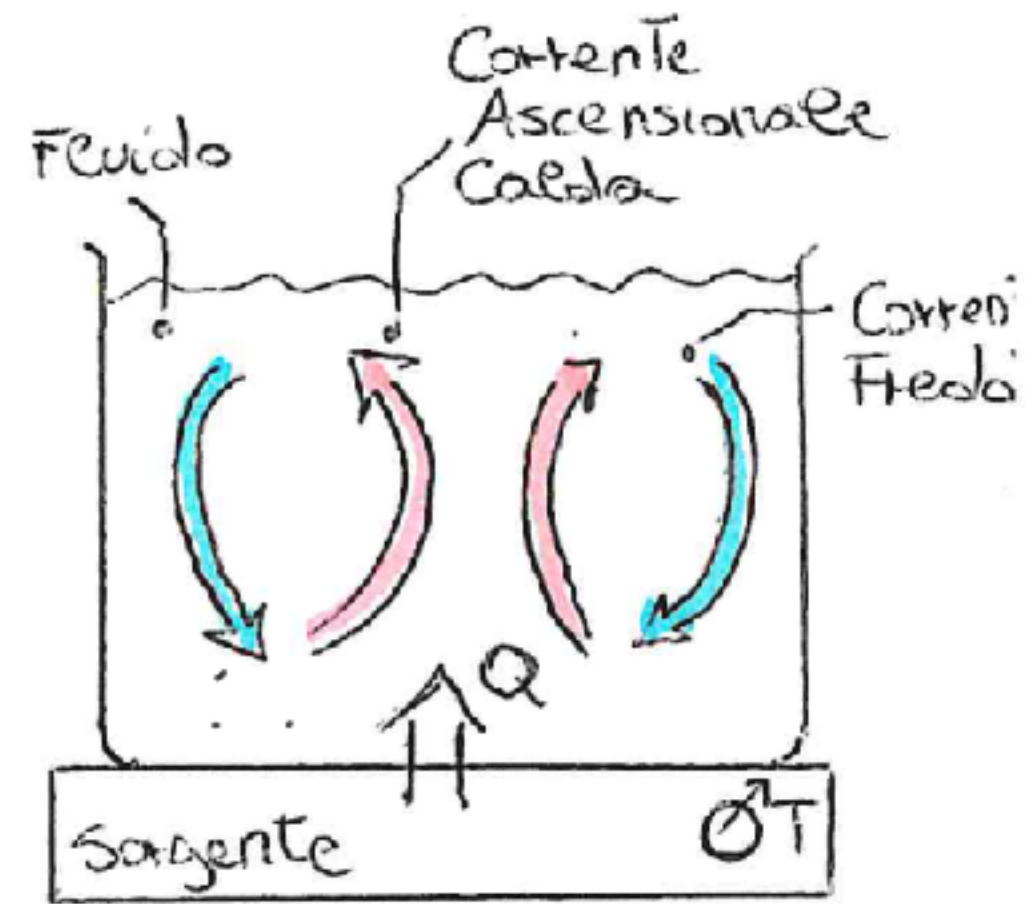 Fluido
Corrente
Ascensionale
Calda
Corren
Fredd
Q
Sorgente
T